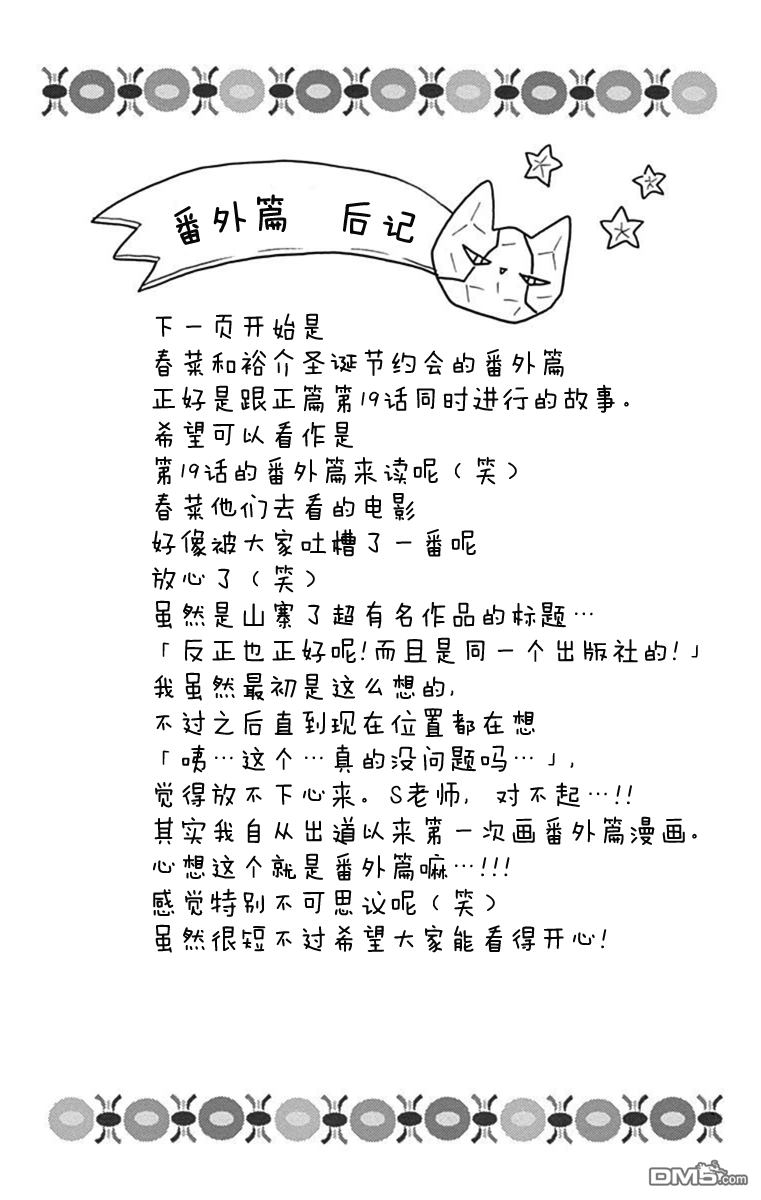 番外篇 后记
下一页开始是
春菜和裕介圣诞节约会的番外篇
正好是跟正篇第19话同时进行的故事。
希望可以看作是
第19话的番外篇来读呢（笑）
春菜他们去看的电影
好像被大家吐槽了一番呢
放心了（笑）
虽然是山寨了超有名作品的标题…
「反正也正好呢!而且是同一个出版社的!」
我虽然最初是这么想的,
不过之后直到现在位置都在想
「咦…这个…真的没问题吗…」,
觉得放不下心来。S老师, 对不起…!!
其实我自从出道以来第一次画番外篇漫画。
心想这个就是番外篇嘛…!!!
感觉特别不可思议呢（笑）
虽然很短不过希望大家能看得开心!
DM5.com